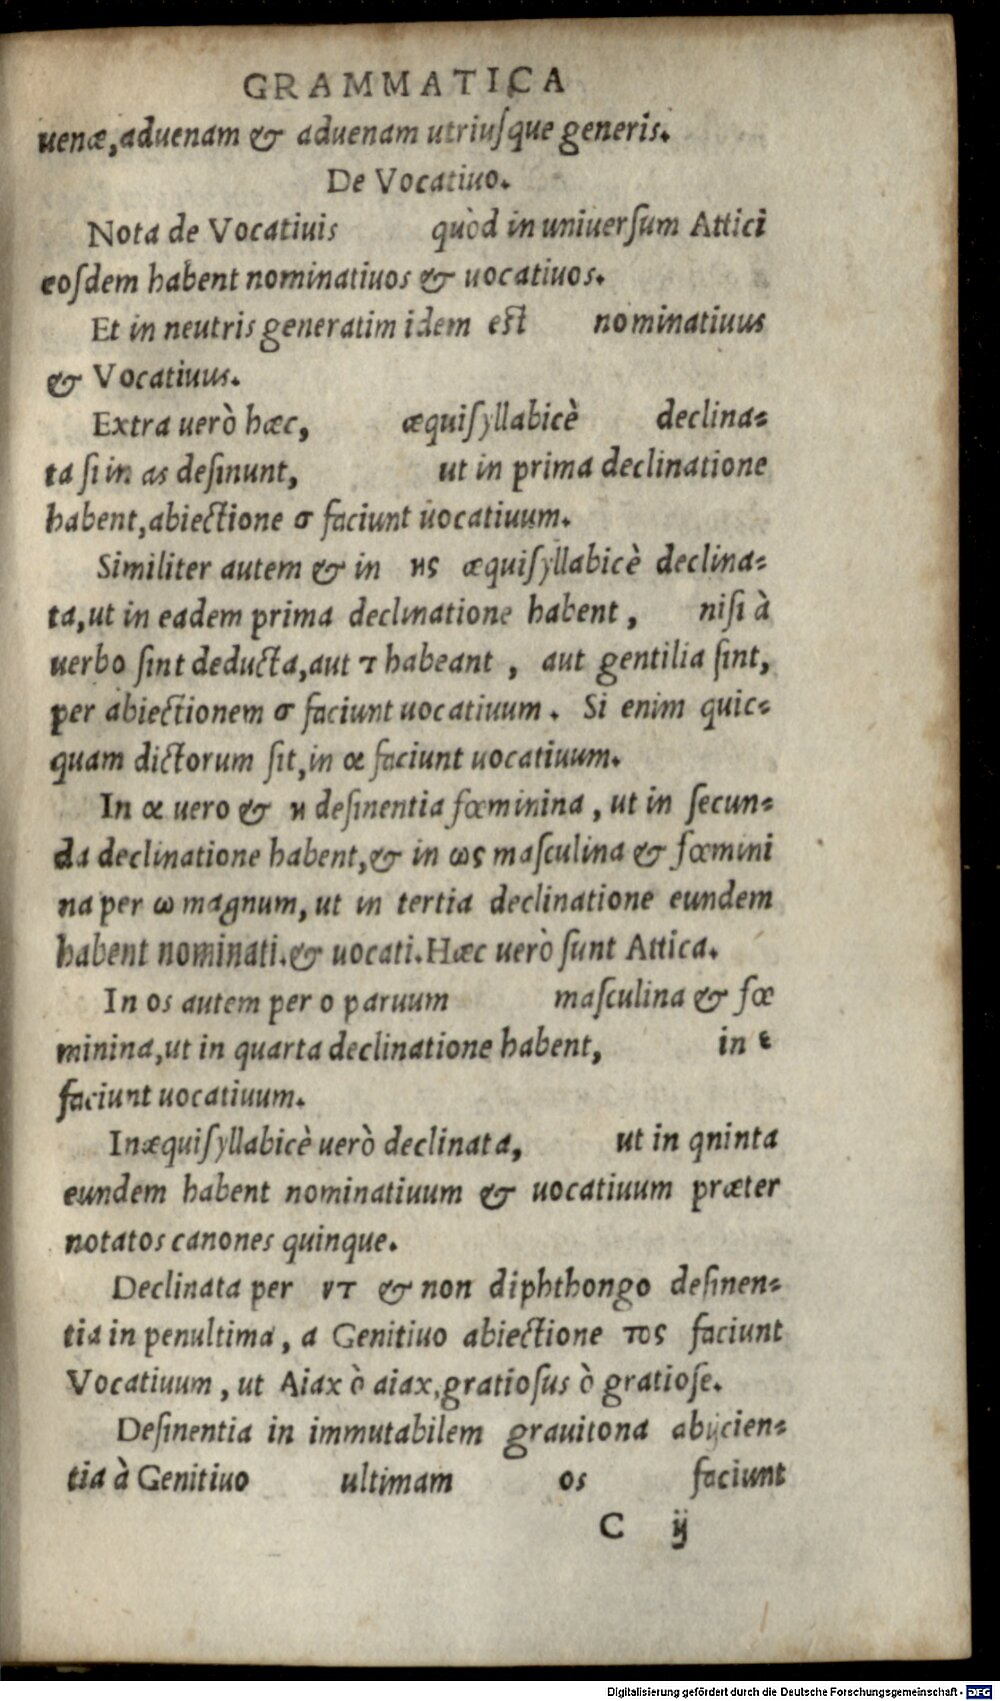 GRAMMATICA
uenæ, aduenam & aduenam utriuſque generis.
De Vocatiuo.
Nota de Vocatiuis quòd in uniuerſum Attici
eoſdem habent nominatiuos & uocatiuos.
Et in neutris generatim idem est nominatiuus
& Vocatiuus.
Extra uerò hæc, æquiſyllabicè declina⸗
ta ſi in as deſinunt, ut in prima declinatione
habent, abiectione σ faciunt uocatiuum.
Similiter autem & in ης æquiſyllabicè declina⸗
ta, ut in eadem prima declinatione habent, niſi à
uerbo ſint deducta, aut τ habeant, aut gentilia ſint,
per abiectionem σ faciunt uocatiuum. Si enim quic⸗
quam dictorum ſit, in α faciunt uocatiuum.
In α uero & η deſinentia fœminina, ut in ſecun⸗
da declinatione habent, & in ως maſculina & fœmini
na per ω magnum, ut in tertia declinatione eundem
habent nominati. & uocati. Hæc uerò ſunt Attica.
In os autem per o paruum maſculina & fœ
minina, ut in quarta declinatione habent, in ε
faciunt uocatiuum.
Inæquiſyllabicè uerò declinata, ut in qninta
eundem habent nominatiuum & uocatiuum præter
notatos canones quinque.
Declinata per ντ & non diphthongo deſinen⸗
tia in penultima, a Genitiuo abiectione τος faciunt
Vocatiuum, ut Aiax ò aiax, gratioſus ò gratioſe.
Deſinentia in immutabilem grauitona abijcien⸗
tia à Genitiuo ultimam os faciunt
C ij
Digitalisierung gefördert durch die Deutsche Forschungsgemeinschaft - DFG